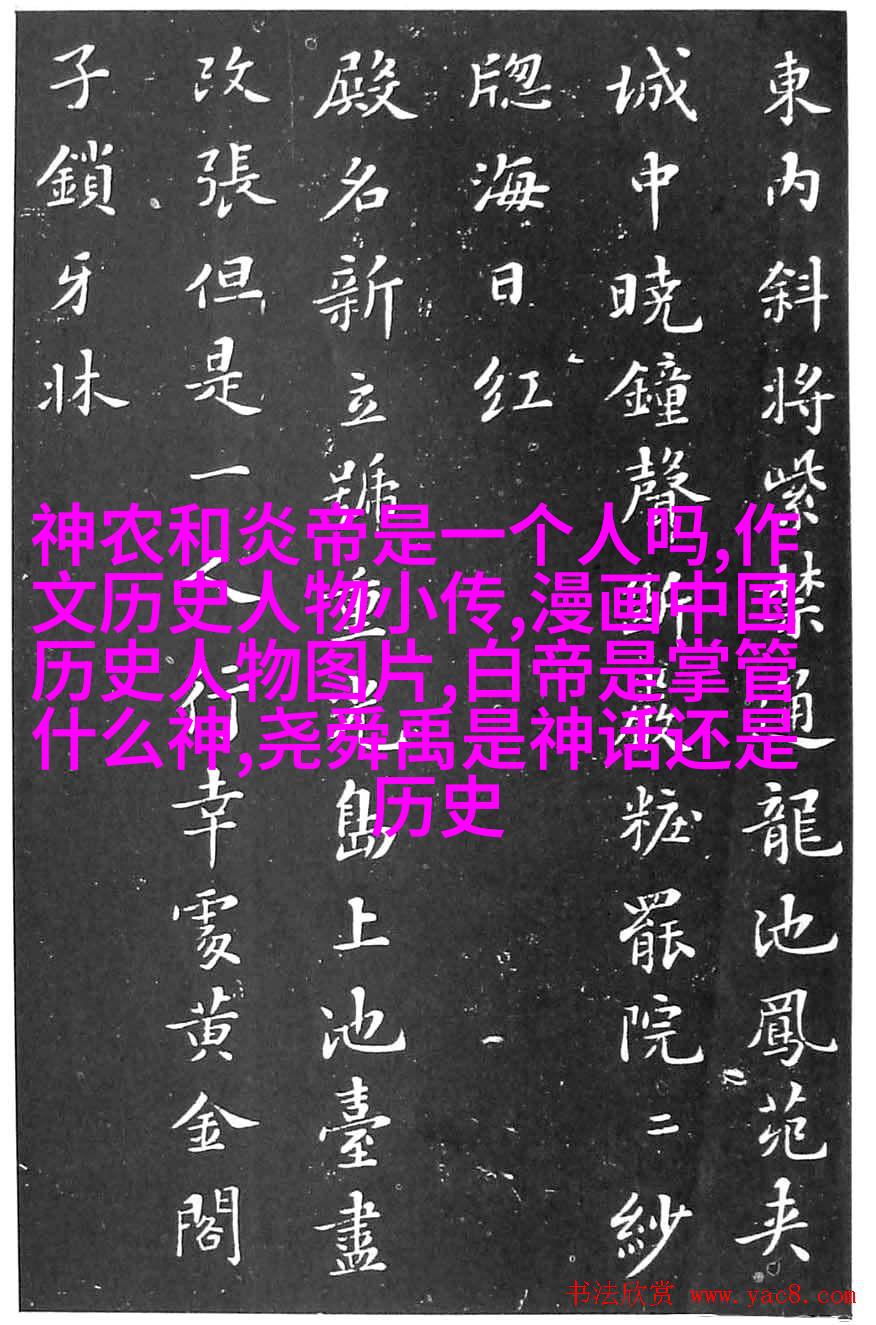 東内斜將紫禁通龍池鳳苑夾
城中曉鐘聲斷嚴粧罷院二紗
牎海日红
殿名新立號重光島上池臺盡
改張但是一人行幸處黄金閣
子鎖牙牀
神农和炎帝是一个人吗,作
文历史人物小传,漫画中国
历史人物图片,白帝是掌管
什么神,尧舜禹是神话还是
历史
书法欣赏 www.yac8.com